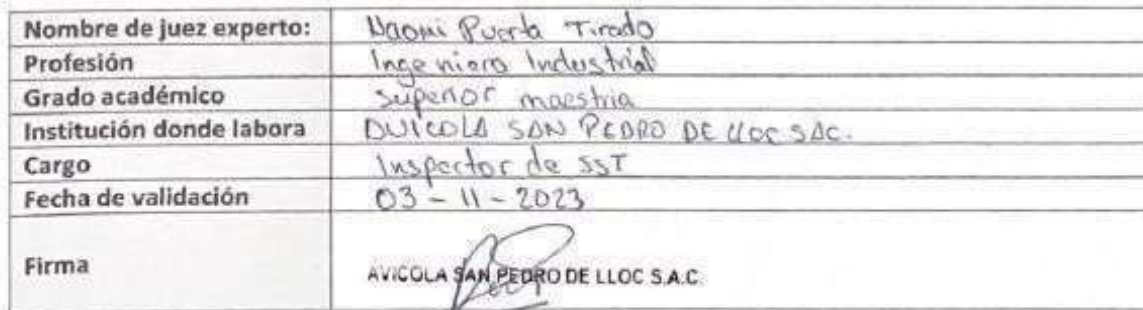 Nombre de juez experto: Naomi Puerta Tirado
Profesión Ingeniero Industrial
Grado académico Superior maestria
Institución donde labora AVICOLA SAN PEDRO DE LLOC SAC.
Cargo Inspector de SST
Fecha de validación 03 - 11 - 2023
Firma AVICOLA SAN PEDRO DE LLOC S.A.C.